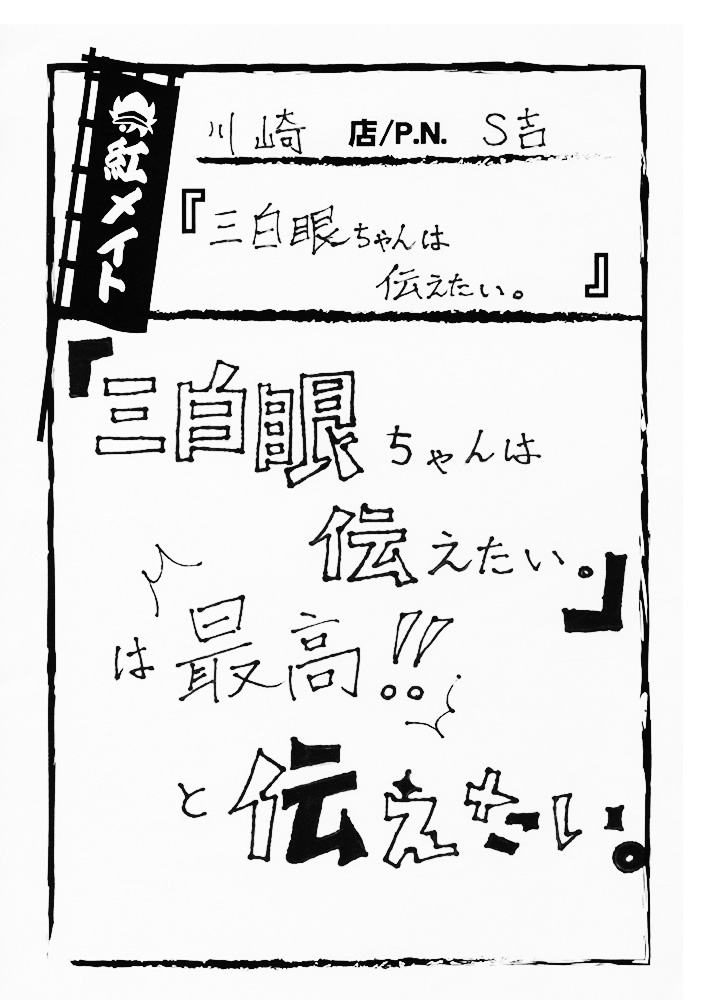 紅メイト
川崎 店/P.N. S吉
『三白眼ちゃんは
伝えたい。』
『三白眼ちゃんは
伝えたい。』
は最高!!
と伝えたい。